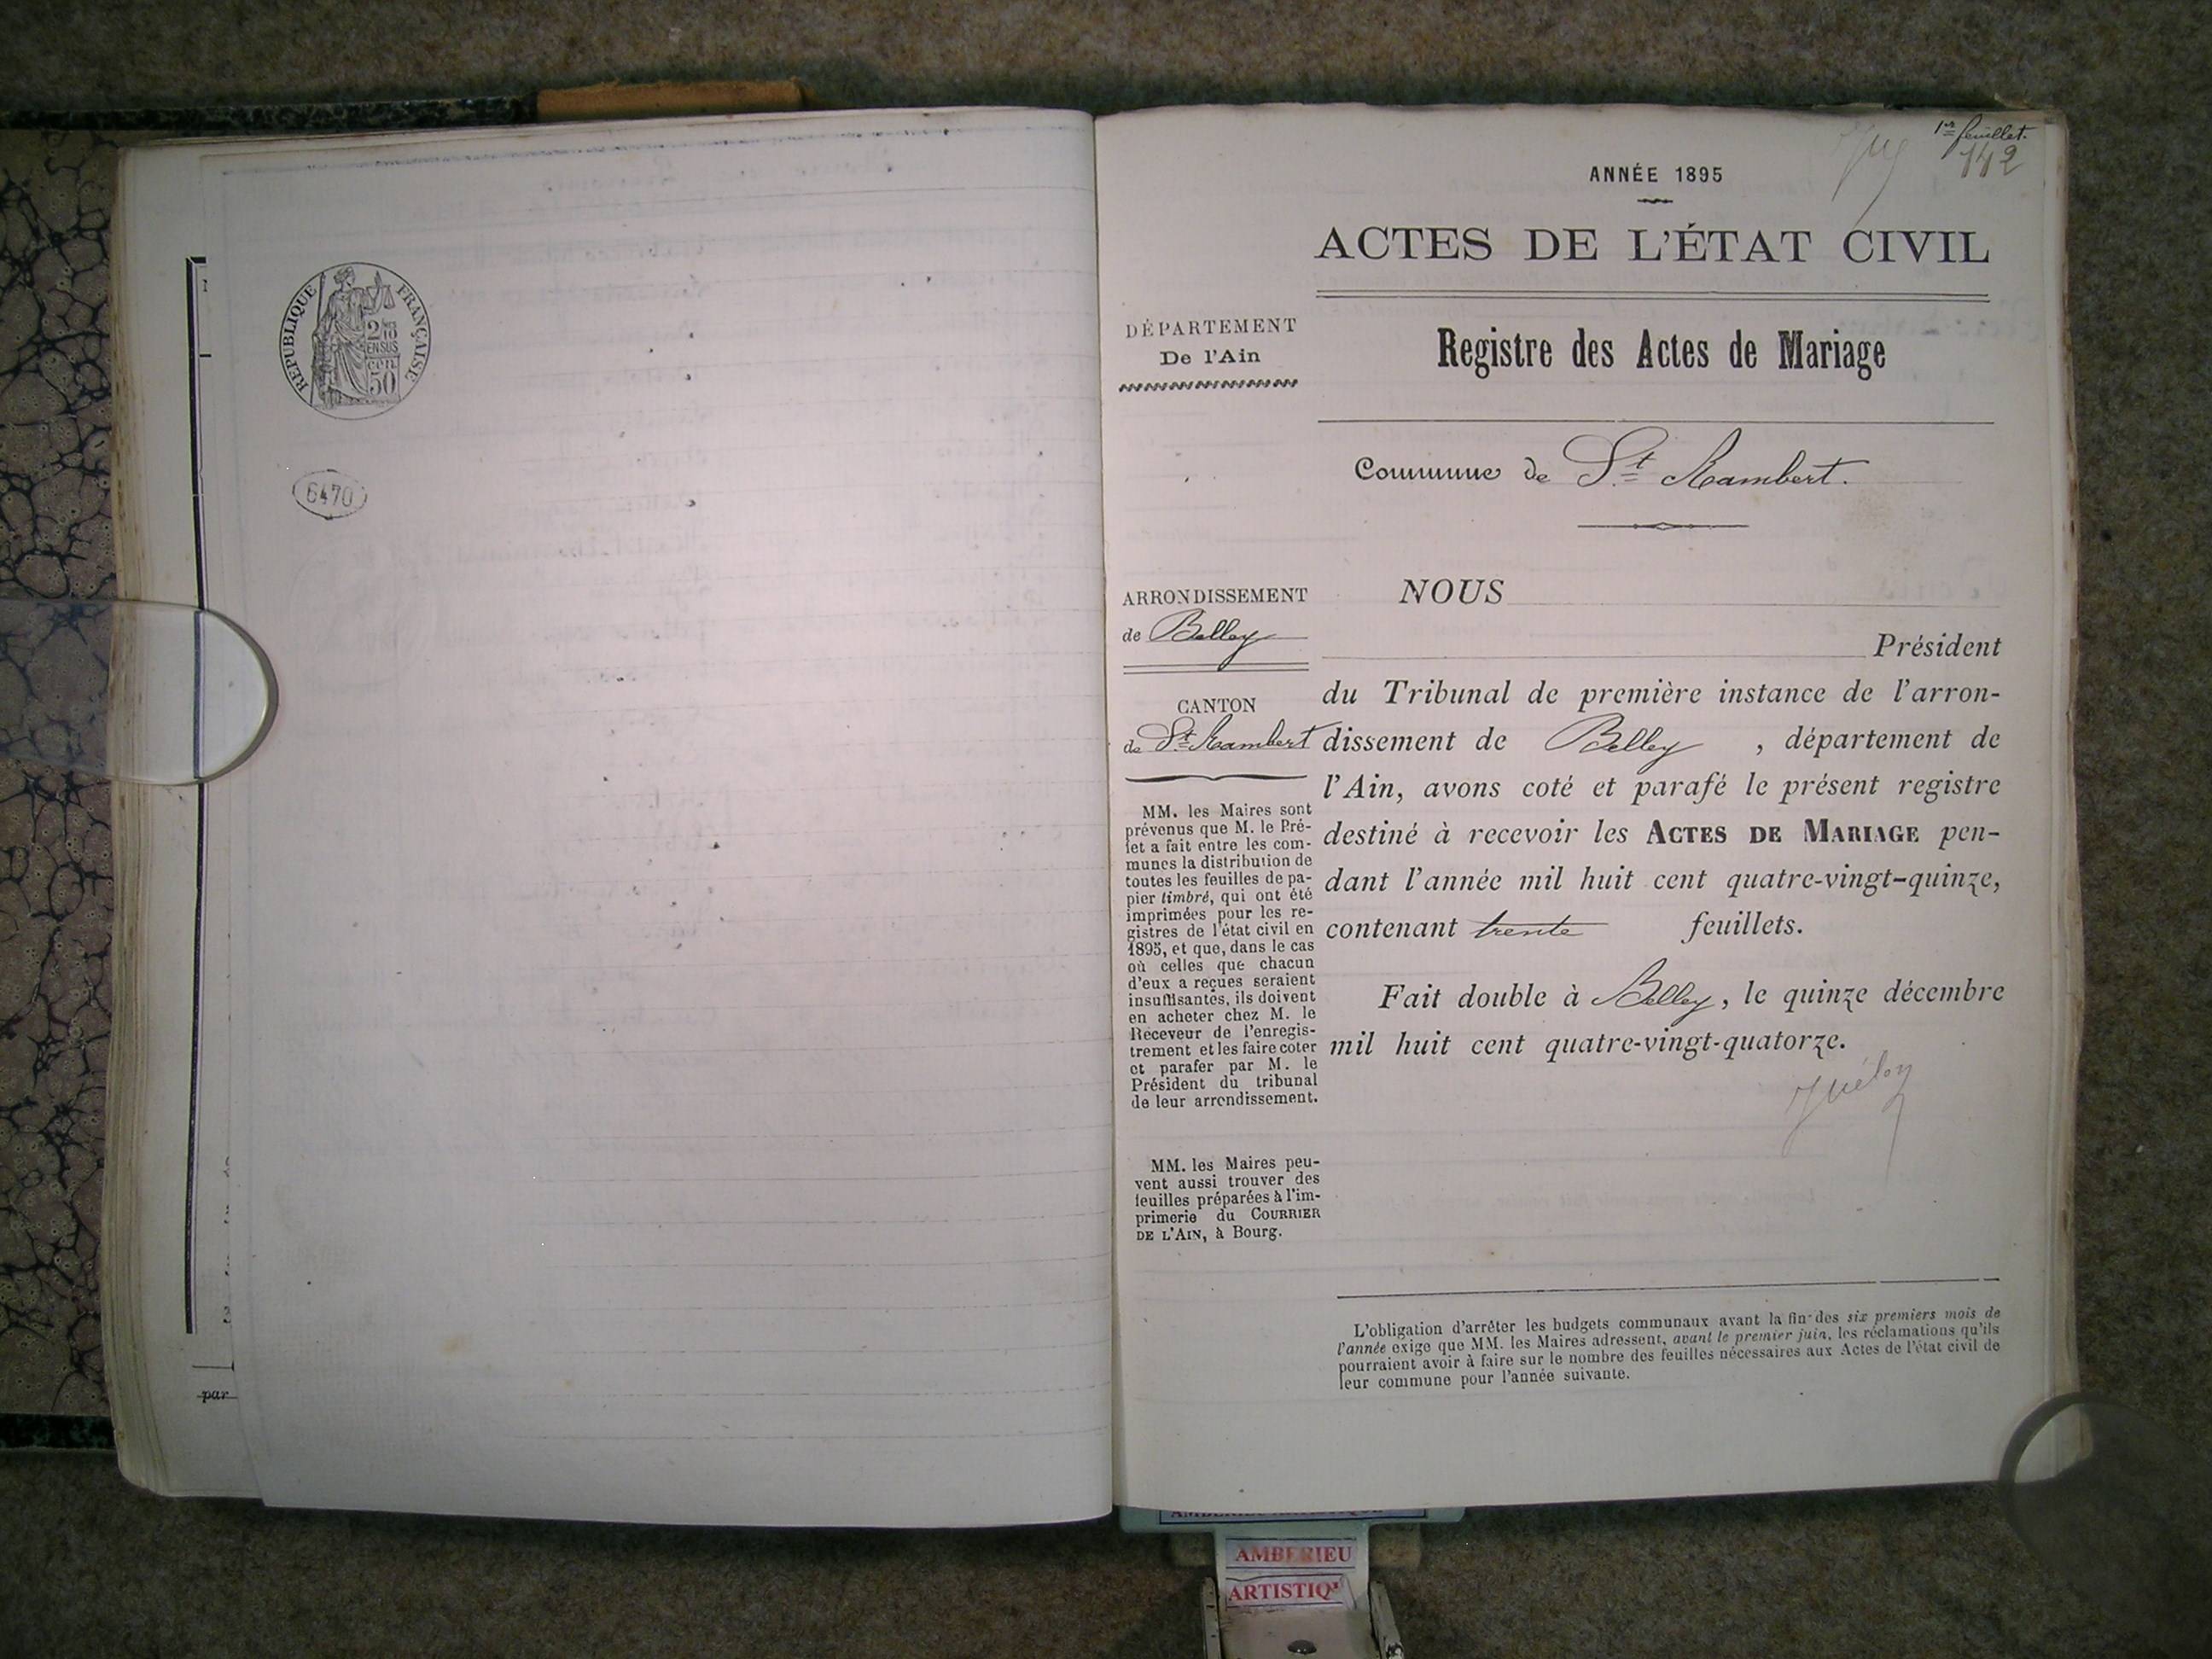 RÉPUBLIQUE FRANÇAISE
2/10 EN SUS
cen
50
6470
par
1er feuillet.
142
ANNÉE 1895
ACTES DE L'ÉTAT CIVIL
DÉPARTEMENT
De l'Ain
Registre des Actes de Mariage
Commune de St Rambert.
ARRONDISSEMENT
de Belley
CANTON
de St Rambert
MM. les Maires sont
prévenus que M. le Pré-
fet a fait entre les com-
munes la distribution de
toutes les feuilles de pa-
pier timbré, qui ont été
imprimées pour les re-
gistres de l'état civil en
1895, et que, dans le cas
où celles que chacun
d'eux a reçues seraient
insuffisantes, ils doivent
en acheter chez M. le
Receveur de l'enregis-
trement et les faire coter
et parafer par M. le
Président du tribunal
de leur arrondissement.
MM. les Maires peu-
vent aussi trouver des
feuilles préparées à l'im-
primerie du COURRIER
DE L'AIN, à Bourg.
NOUS
Président
du Tribunal de première instance de l'arron-
dissement de Belley, département de
l'Ain, avons coté et parafé le présent registre
destiné à recevoir les ACTES DE MARIAGE pen-
dant l'année mil huit cent quatre-vingt-quinze,
contenant trente feuillets.
Fait double à Belley, le quinze décembre
mil huit cent quatre-vingt-quatorze.
L'obligation d'arrêter les budgets communaux avant la fin des six premiers mois de
l'année exige que MM. les Maires adressent, avant le premier juin, les réclamations qu'ils
pourraient avoir à faire sur le nombre des feuilles nécessaires aux Actes de l'état civil de
leur commune pour l'année suivante.
AMBERIEU
ARTISTIQ